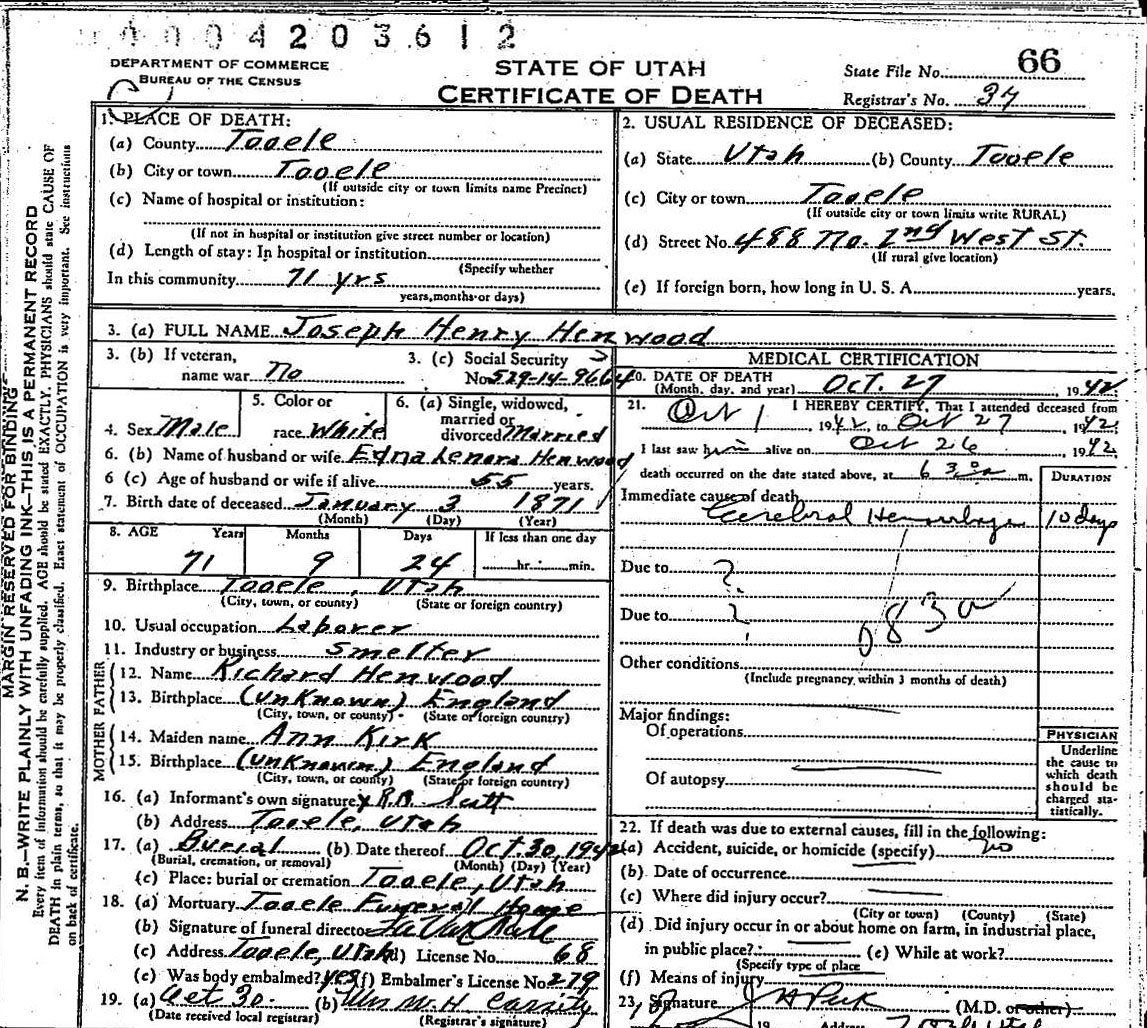 A004203612
DEPARTMENT OF COMMERCE
BUREAU OF THE CENSUS
STATE OF UTAH
CERTIFICATE OF DEATH
State File No. 66
Registrar's No. 37
MARGIN RESERVED FOR BINDING
N. B.—WRITE PLAINLY WITH UNFADING INK—THIS IS A PERMANENT RECORD
Every item of information should be carefully supplied. AGE should be stated EXACTLY. PHYSICIANS should state CAUSE OF
DEATH in plain terms, so that it may be properly classified. Exact statement of OCCUPATION is very important. See instructions
on back of certificate.
1. PLACE OF DEATH:
(a) County Tooele
(b) City or town Tooele
(If outside city or town limits name Precinct)
(c) Name of hospital or institution:
(If not in hospital or institution give street number or location)
(d) Length of stay: In hospital or institution
(Specify whether
In this community 71 yrs
years, months or days)
2. USUAL RESIDENCE OF DECEASED:
(a) State Utah (b) County Tooele
(c) City or town Tooele
(If outside city or town limits write RURAL)
(d) Street No. 488 No. 2nd West St.
(If rural give location)
(e) If foreign born, how long in U. S. A. years.
3. (a) FULL NAME Joseph Henry Henwood
3. (b) If veteran,
name war No
3. (c) Social Security
No. 529-14-9664
4. Sex Male
5. Color or
race White
6. (a) Single, widowed,
married or
divorced Married
6. (b) Name of husband or wife Edna Lenora Henwood
6 (c) Age of husband or wife if alive 55 years.
7. Birth date of deceased January 3 1871
(Month) (Day) (Year)
8. AGE Years Months Days If less than one day
71 9 24 hr. min.
9. Birthplace Tooele, Utah
(City, town, or county) (State or foreign country)
10. Usual occupation Laborer
11. Industry or business Smelter
FATHER
12. Name Richard Henwood
13. Birthplace (unknown) England
(City, town, or county) (State or foreign country)
MOTHER
14. Maiden name Ann Kirk
15. Birthplace (unknown) England
(City, town, or county) (State or foreign country)
16. (a) Informant's own signature x R.R. Scott
(b) Address Tooele, Utah
17. (a) Burial (b) Date thereof Oct. 30, 1942
(Burial, cremation, or removal) (Month) (Day) (Year)
(c) Place: burial or cremation Tooele, Utah
18. (a) Mortuary Tooele Funeral Home
(b) Signature of funeral director
(c) Address Tooele, Utah (d) License No. 68
(e) Was body embalmed? yes (f) Embalmer's License No. 279
19. (a) Oct 30. (b) Mrs W. H. Cassity
(Date received local registrar) (Registrar's signature)
MEDICAL CERTIFICATION
20. DATE OF DEATH
(Month, day, and year) Oct. 27 1942
21. I HEREBY CERTIFY, That I attended deceased from
Oct 1 1942, to Oct 27, 1942
I last saw him alive on Oct 26 1942
death occurred on the date stated above, at 6 30 a m.
DURATION
Immediate cause of death
Cerebral Hemorrhage 10 days
Due to ?
Due to ?
083a
Other conditions
(Include pregnancy within 3 months of death)
Major findings:
Of operations
Of autopsy
PHYSICIAN
Underline
the cause to
which death
should be
charged sta-
tistically.
22. If death was due to external causes, fill in the following:
(a) Accident, suicide, or homicide (specify) no
(b) Date of occurrence
(c) Where did injury occur?
(City or town) (County) (State)
(d) Did injury occur in or about home on farm, in industrial place,
in public place? (e) While at work?
(Specify type of place
(f) Means of injury
23. Signature J H Peck (M.D. or other)
19 Address